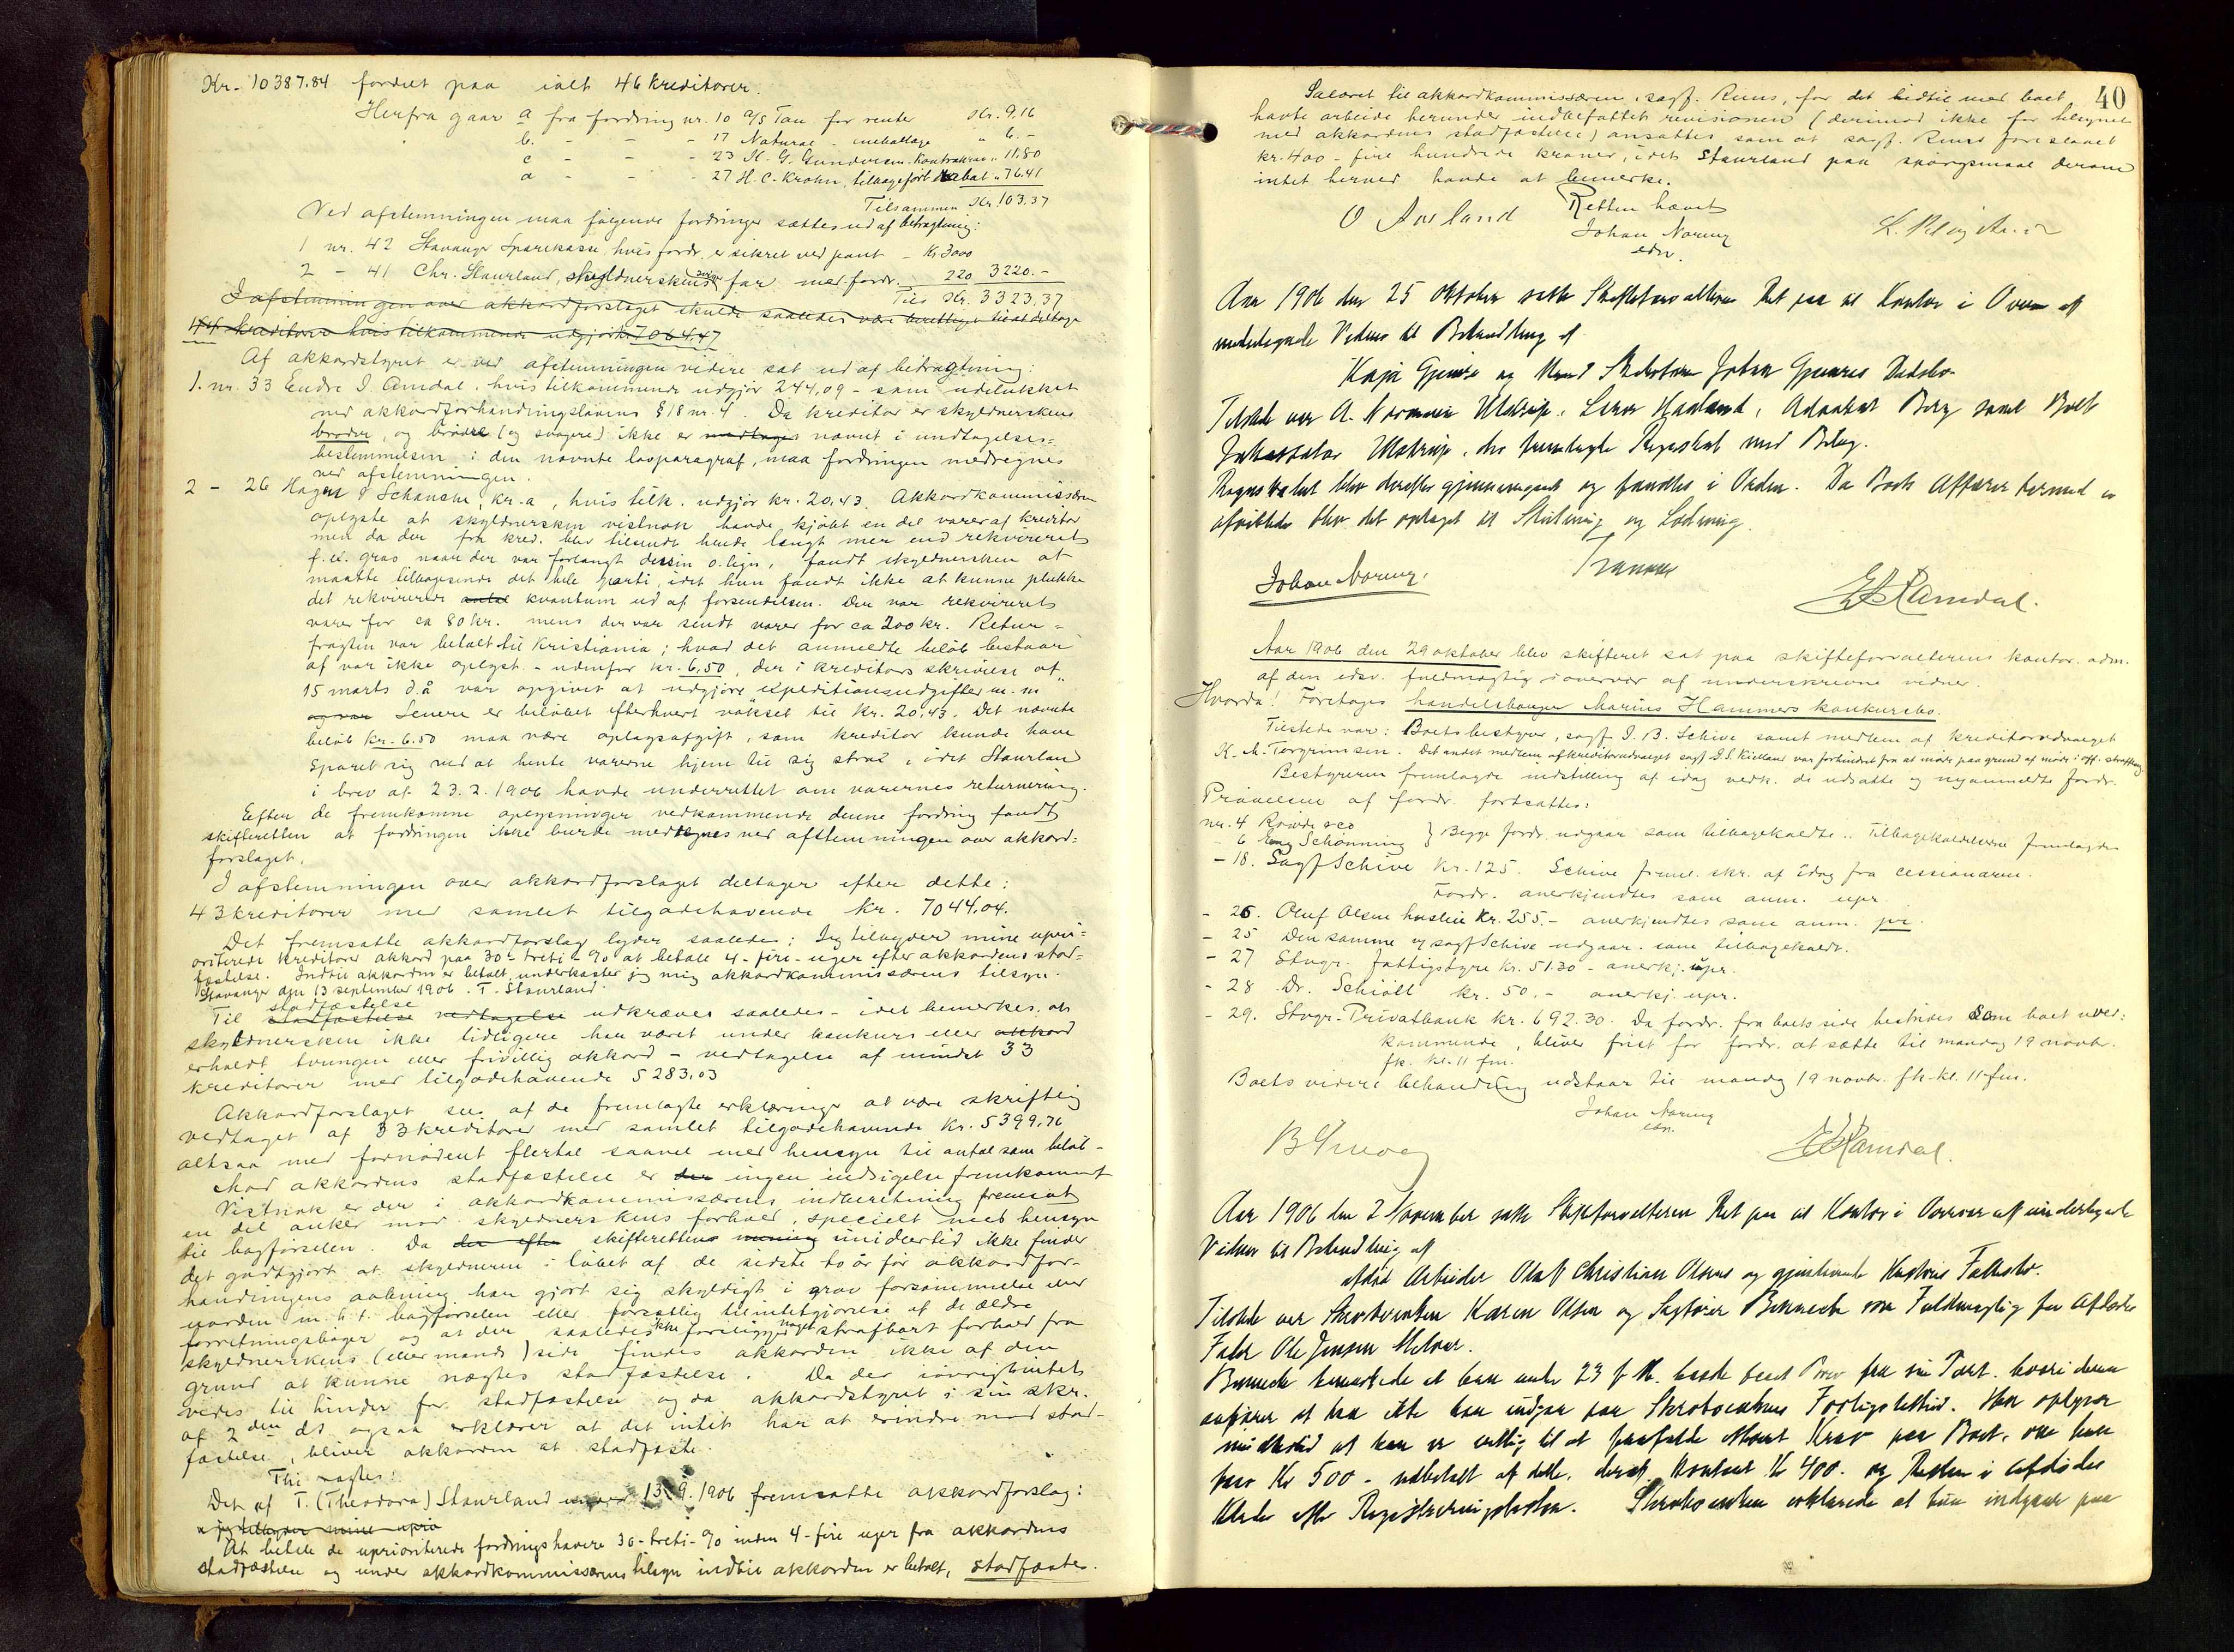 Kr. 10387.84 fordelt paa ialt 46 kreditorer.
Herfra gaar a fra fordring nr. 10 A/S Tau for renter Kr. 9,16
b. - - - 17 Natural - emballage " 6.-
c - - - 23 H. G. Gundersen. Kontrakrav " 11.80
d - - - 27 H. C. Krohn, tilbageført rabat " 76.41
Tilsammen Kr. 103.37
Ved afstemningen maa følgende fordringer sættes ud af betragtning:
1 nr. 42 Stavanger Sparekasse, hvis fordr. er sikret ved pant - Kr 3000
2 - 41 Chr. Staurland, skyldnerskens far med fordr. 220 3220.-
Tils Kr. 3323,37
I afstemningen over akkordforslaget skulde saaledes være berettiget til at deltage
44 kreditorer hvis tilkommende udgjør kr 7064.47
Af akkordstyret er ved afstemningen videre sat ud af betragtning:
1. nr. 33 Endre I. Amdal. hvis tilkommende udgjør 244,09 - som udelukket
ved akkordforhandlingslovens § 18 nr. 4. Da kreditor er skyldnerskens
broder, og brødre (og svogere) ikke er medtaget nævnt i undtagelses-
bestemmelsen i den nævnte lovparagraf, maa fordringen medregnes
ved afstemningen.
2 - 26 Hagen & Schanche, Kr.a, hvis tilk. udgjør kr. 20,43. Akkordkommissæren
oplyste at skyldnersken vistnok havde kjøbt en del varer af kreditor
men da der fra kred. blev tilsendt hende langt mer end rekvireret
f. ex. gros naar der var forlangt dusin o. lign., fandt skyldnersken at
maatte tilbagesende det hele parti, idet hun fandt ikke at kunne plukke
det rekvirerede antal kvantum ud af forsendelsen. Der var rekvireret
varer for ca 80 kr. mens der var sendt varer for ca 200 kr. Retur-
fragten var betalt til Kristiania; hvad det anmeldte beløb bestaar
af var ikke oplyst - udenfor kr. 6,50, der i kreditors skrivelse af
15 marts d.å var opgivet at udgjøre expeditionsudgifter m. m
og var Senere er beløbet efterhvert vokset til kr. 20,43. Det nævnte
beløb kr. 6.50 maa være oplagsafgift, som kreditor kunde have
sparet sig ved at hente varerne hjem til sig straks, idet Staurland
i brev af 23.2.1906 havde underrettet om varernes returnering.
Efter de fremkomne oplysninger vedkommende denne fordring fandt
skifteretten at fordringen ikke burde medregnes ved afstemningen over akkord-
forslaget.
I afstemningen over akkordforslaget deltager efter dette:
43 kreditorer med samlet tilgodehavende kr. 7044,04.
Det fremsatte akkordforslag lyder saaledes: Jeg tilbyder mine upri-
oriterede kreditorer akkord paa 30 - treti - % at betale 4 - fire - uger efter akkordens stad-
fæstelse. Indtil akkorden er betalt, underkaster jeg mig akkordkommissærens tilsyn.
Stavanger den 13 september 1906. T. Staurland.
stadfæstelse
Til stadfæstelse vedtagelse udkræves saaledes - idet bemerkes, at
skyldnersken ikke tidligere har været under konkurs eller akkord
erholdt tvungen eller frivillig akkord - vedtagelse af mindst 33
kreditorer med tilgodehavende 5283,03
Akkordforslaget sees af de fremlagte erklæringer at være skriftlig
vedtaget af 33 kreditorer med samlet tilgodehavende kr. 5399,76
altsaa med fornødent flertal saavel med hensyn til antal som beløb -
Mod akkordens stadfæstelse er der ingen indsigelse fremkommet
Vistnok er der i akkordkommissærens indberetning fremsat
en del anker mod skyldnerskens forhold, specielt med hensyn
til bogførselen. Da der efter skifterettens mening imidlertid ikke finder
det godtgjort at skyldneren i løbet af de sidste to år før akkordfor-
handlingens aabning har gjort sig skyldigt i grov forsømmelse eller
uorden m. h. t. bogførselen eller forsætlig tilintetgjørelse af de ældre
forretningsbøger og at der saaledes ikke foreligger noget strafbart forhold fra
skyldnerskens (eller mands) side findes akkorden ikke af den
grund at kunne nægtes stadfæstelse. Da der iøvrigt intet
vides til hinder for stadfæstelse og da akkordstyret i sin skr.
af 2den ds ogsaa erklærer at det intet har at erindre mod stad-
fæstelse, bliver akkorden at stadfæste.
Thi sagtes!
Det af T. (Theodora) Staurland under 13.9.1906 fremsatte akkordforslag:
"jeg tilbyder mine upri
At betale de uprioriterede fordringshavere 30 - treti - % inden 4 - fire uger fra akkordens
stadfæstelse og under akkordkommissærens tilsyn indtil akkorden er betalt, stadfæstes.
40
Salæret til akkordkommissæren, sagf. Ruus, for det hidtil med boet
havte arbeide herunder indbefattet revisionen (derimod ikke for tilsynet
med akkordens stadfæstelse) ansattes som at sagf. Ruus foreslaaet
kr. 400 - fire hundrede kroner, idet Staurland paa spørgsmaal derom
intet herved havde at bemerke.
Retten hævet
O Aarland
Johan Noreng
edsv.
Aar 1906 den 25 Oktober satte Skifteforvalteren Ret paa sit Kontor i Overvær af
undertegnede Vidner til Behandling af
Kaja Gjemre og Mand Skibsfører Johan Gjemres Dødsbo.
Tilstede var A. Normann Ulstrup, Lærer Haaland, Advokat Berg samt Boets
Inkassator Ulstrup, der fremlagte Regnskab med Bilag.
Regnskabet blev derefter gjennemgaaet og fandtes i Orden. Da Boets Affærer hermed er
afviklede blev det optaget til Slutning og Lodning.
Johan Noreng.
E I Ramdal.
Aar 1906 den 29 oktober blev skifteret sat paa skifteforvalterens kontor. adm.
af den edsv. fuldmægtig i overvær af underskrevne vidner.
Hvorda! Foretoges handelsborger Marius Hammers konkursbo.
Tilstede var: Boets bestyrer, sagf. J. B. Schive samt medlem af kreditorudvalget
K. M. Torgrimsen. Det andet medlem af kreditorudvalget sagf. J. S. Kielland var forhindret fra at møde paa grund af møde i off. straffesag.
Bestyreren fremlagde indstilling af idag vedk. de udsatte og nyanmeldte fordr.
Prøvelsen af fordr. fortsattes:
nr. 4
- 6 Schønning } Begge fordr. udgaar som tilbagekaldte. Tilbagekaldelserne fremlagdes
- 18. Sagf Schive kr. 125. Schive freml. skr. af idag fra cessionaren.
Fordr. anerkjendtes som anm. upr
- 26. Oluf Olsen husleie kr. 255.- anerkjendtes som anm. pr.
- 25 Den samme v/ sagf Schive udgaar. som tilbagekaldt.
- 27 Stvgr. fattigstyre kr. 51.30 - anerkj. upr.
- 28 Dr. Schiøtt kr. 50.- anerkj. upr.
- 29. Stvgr. Privatbank kr. 692.30. Da fordr. fra boets side bestrides som boet uved-
kommende, bliver frist for fordr. at sætte til mandag 19 novbr.
fk. kl. 11 fm.
Boets videre behandling udstaar til mandag 19 novbr. fk. kl. 11 fm.
Johan Noreng
edsv.
E I Ramdal.
Aar 1906 den 2 November satte Skifteforvalteren Ret paa sit Kontor i Overvær af undertegnede
Vidner til Behandling af
afdød Arbeider Olaf Christian Olsens og gjenlevende Hustrus Fællesbo.
Tilstede var Skrotvenken Karen Olsen og Sagfører Bennech som Fuldmægtig for Afdødes
Fader Ole Jensen Melvær.
Bennech bemærkede at han under 23 f. M. havde faaet Brev fra sin Part, hvori denne
anfører at han ikke kan indgaa paa Forligstilbud. Han oplyser
imidlertid at han er villig til at frafalde ethvert Krav paa Boet, om han
faar Kr 500 - udbetalt af dette, deraf kontant Kr 400. og Resten i afdødes
Klæder efter Registreringstaksten. erklærede at hun indgaar paa